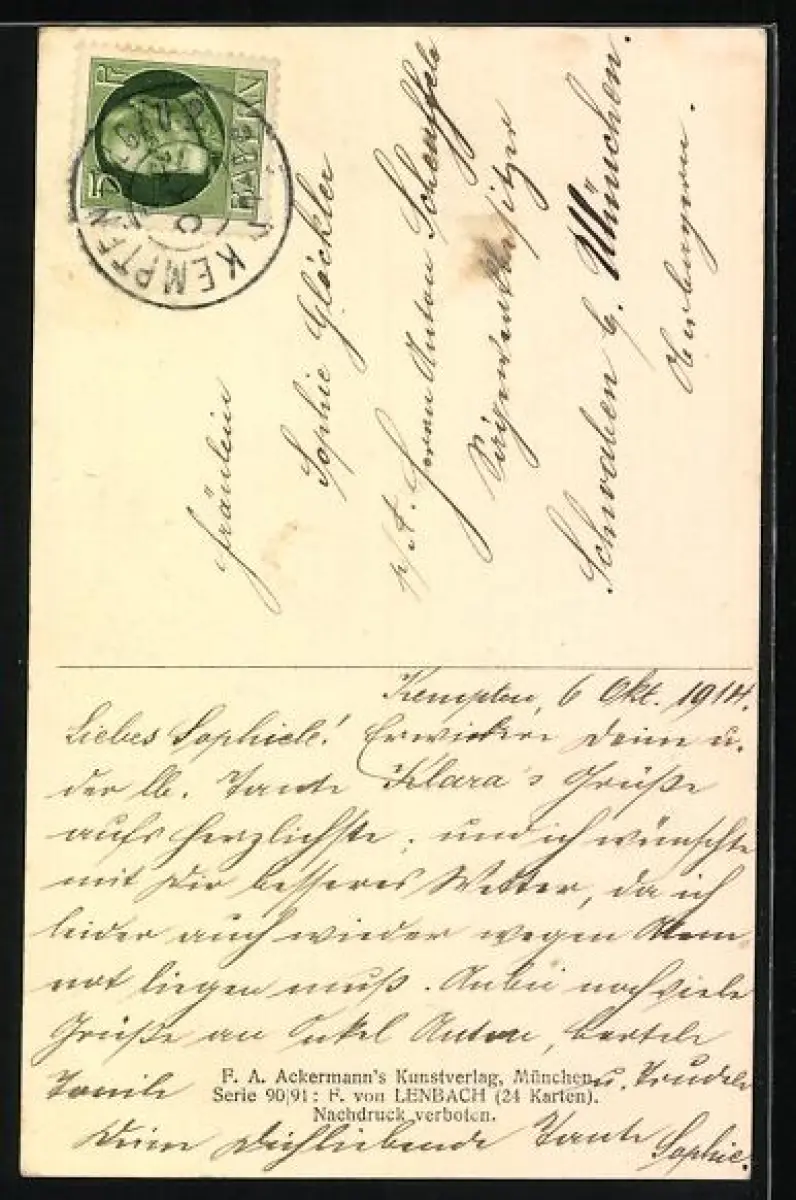 BAYERN
5 Pf
KEMPTEN
Fräulein
Sophie Glöckler
p/A. Herrn Anton Scheuffele
Schwaben b. München.
Oberbayern.
Kempten, 6 Okt. 1914.
Liebes Sophiele! Erwidere Deine u.
der lb. Tante Klara's Grüße
aufs herzlichste, und ich wünschte
mit Dir besseres Wetter, da ich
leider auch wieder wegen Atem-
not liegen muß. Anbei noch viele
Grüße an Onkel Anton, Bertele
Tonile u. Trudele
F. A. Ackermann's Kunstverlag, München.
Serie 90|91: F. von LENBACH (24 Karten).
Nachdruck verboten.
Deine Dichliebende Tante Sophie.